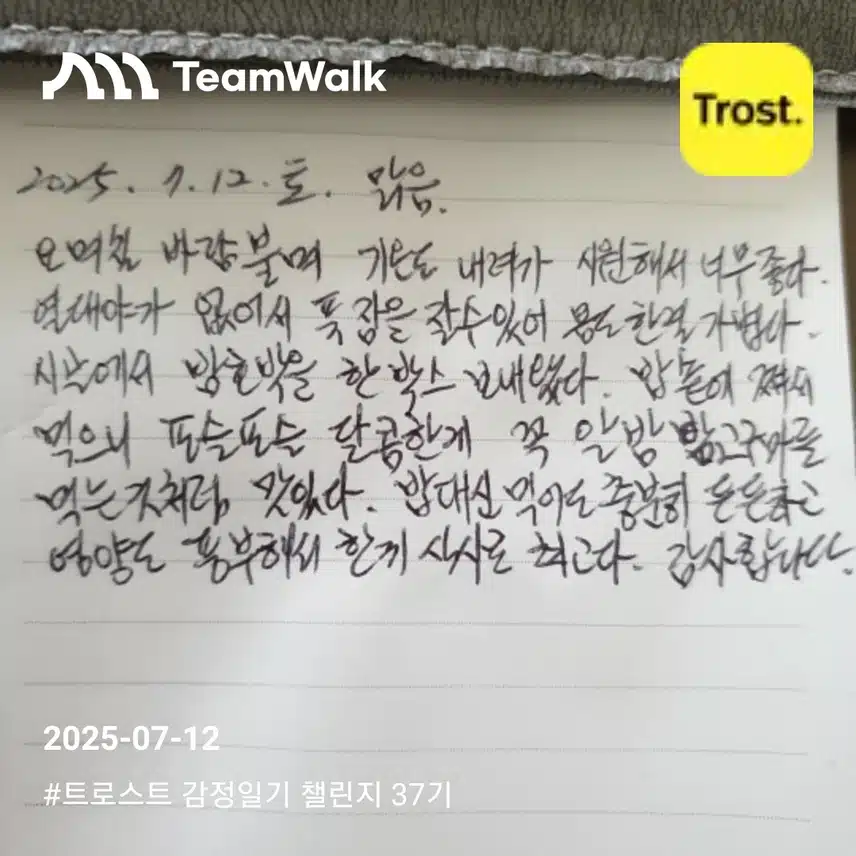 TeamWalk
Trost.
2025. 7. 12. 토. 맑음.
요며칠 바람불며 기온도 내려가 시원해서 너무좋다.
열대야가 없어서 푹잠을 잘수있어 몸도 한결 가볍다.
시누에서 밤호박을 한박스 보내왔다. 밥솥에 쪄서
먹으니 포슬포슬 달콤한게 꼭 알밤 밤고구마를
먹는것처럼 맛있다. 밥대신 먹어도 충분히 든든하고
영양도 풍부해서 한끼 식사로 최고다. 감사합니다.
2025-07-12
#트로스트 감정일기 챌린지 37기